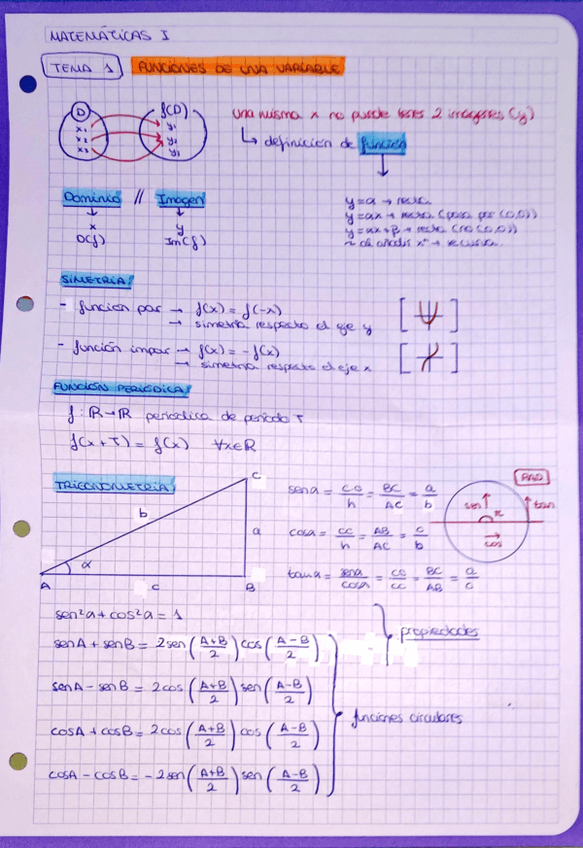 MATEMÁTICAS I
TEMA 1 FUNCIONES DE UNA VARIABLE
D f(D)
x₁ y₁
x₂ y₂
x₃ y₃
una misma x no puede tener 2 imágenes (y)
↳ definición de función
Dominio // Imagen
x y
D(f) Im(f)
y = a → recta
y = ax → recta (pasa por (0,0))
y = ax + β → recta (no (0,0))
SIMETRÍA:
- función par → f(x) = f(-x)
→ simetría respecto el eje y
- función impar → f(x) = -f(x)
→ simetría respecto el eje x
FUNCIÓN PERIÓDICA:
f: ℝ→ℝ periódica de período T
f(x+T) = f(x) ∀x∈ℝ
TRIGONOMETRÍA:
A B C
a b c α
sen a = co/h = BC/AC = a/b
cos a = cc/h = AB/AC = c/b
tan a = sen a/cos a = co/cc = BC/AB = a/c
RAD
sen π tan
cos
sen²a + cos²a = 1
propiedades
senA + senB = 2sen((A+B)/2) cos((A-B)/2)
senA - senB = 2cos((A+B)/2) sen((A-B)/2)
funciones circulares
cosA + cosB = 2cos((A+B)/2) cos((A-B)/2)
cosA - cosB = -2sen((A+B)/2) sen((A-B)/2)